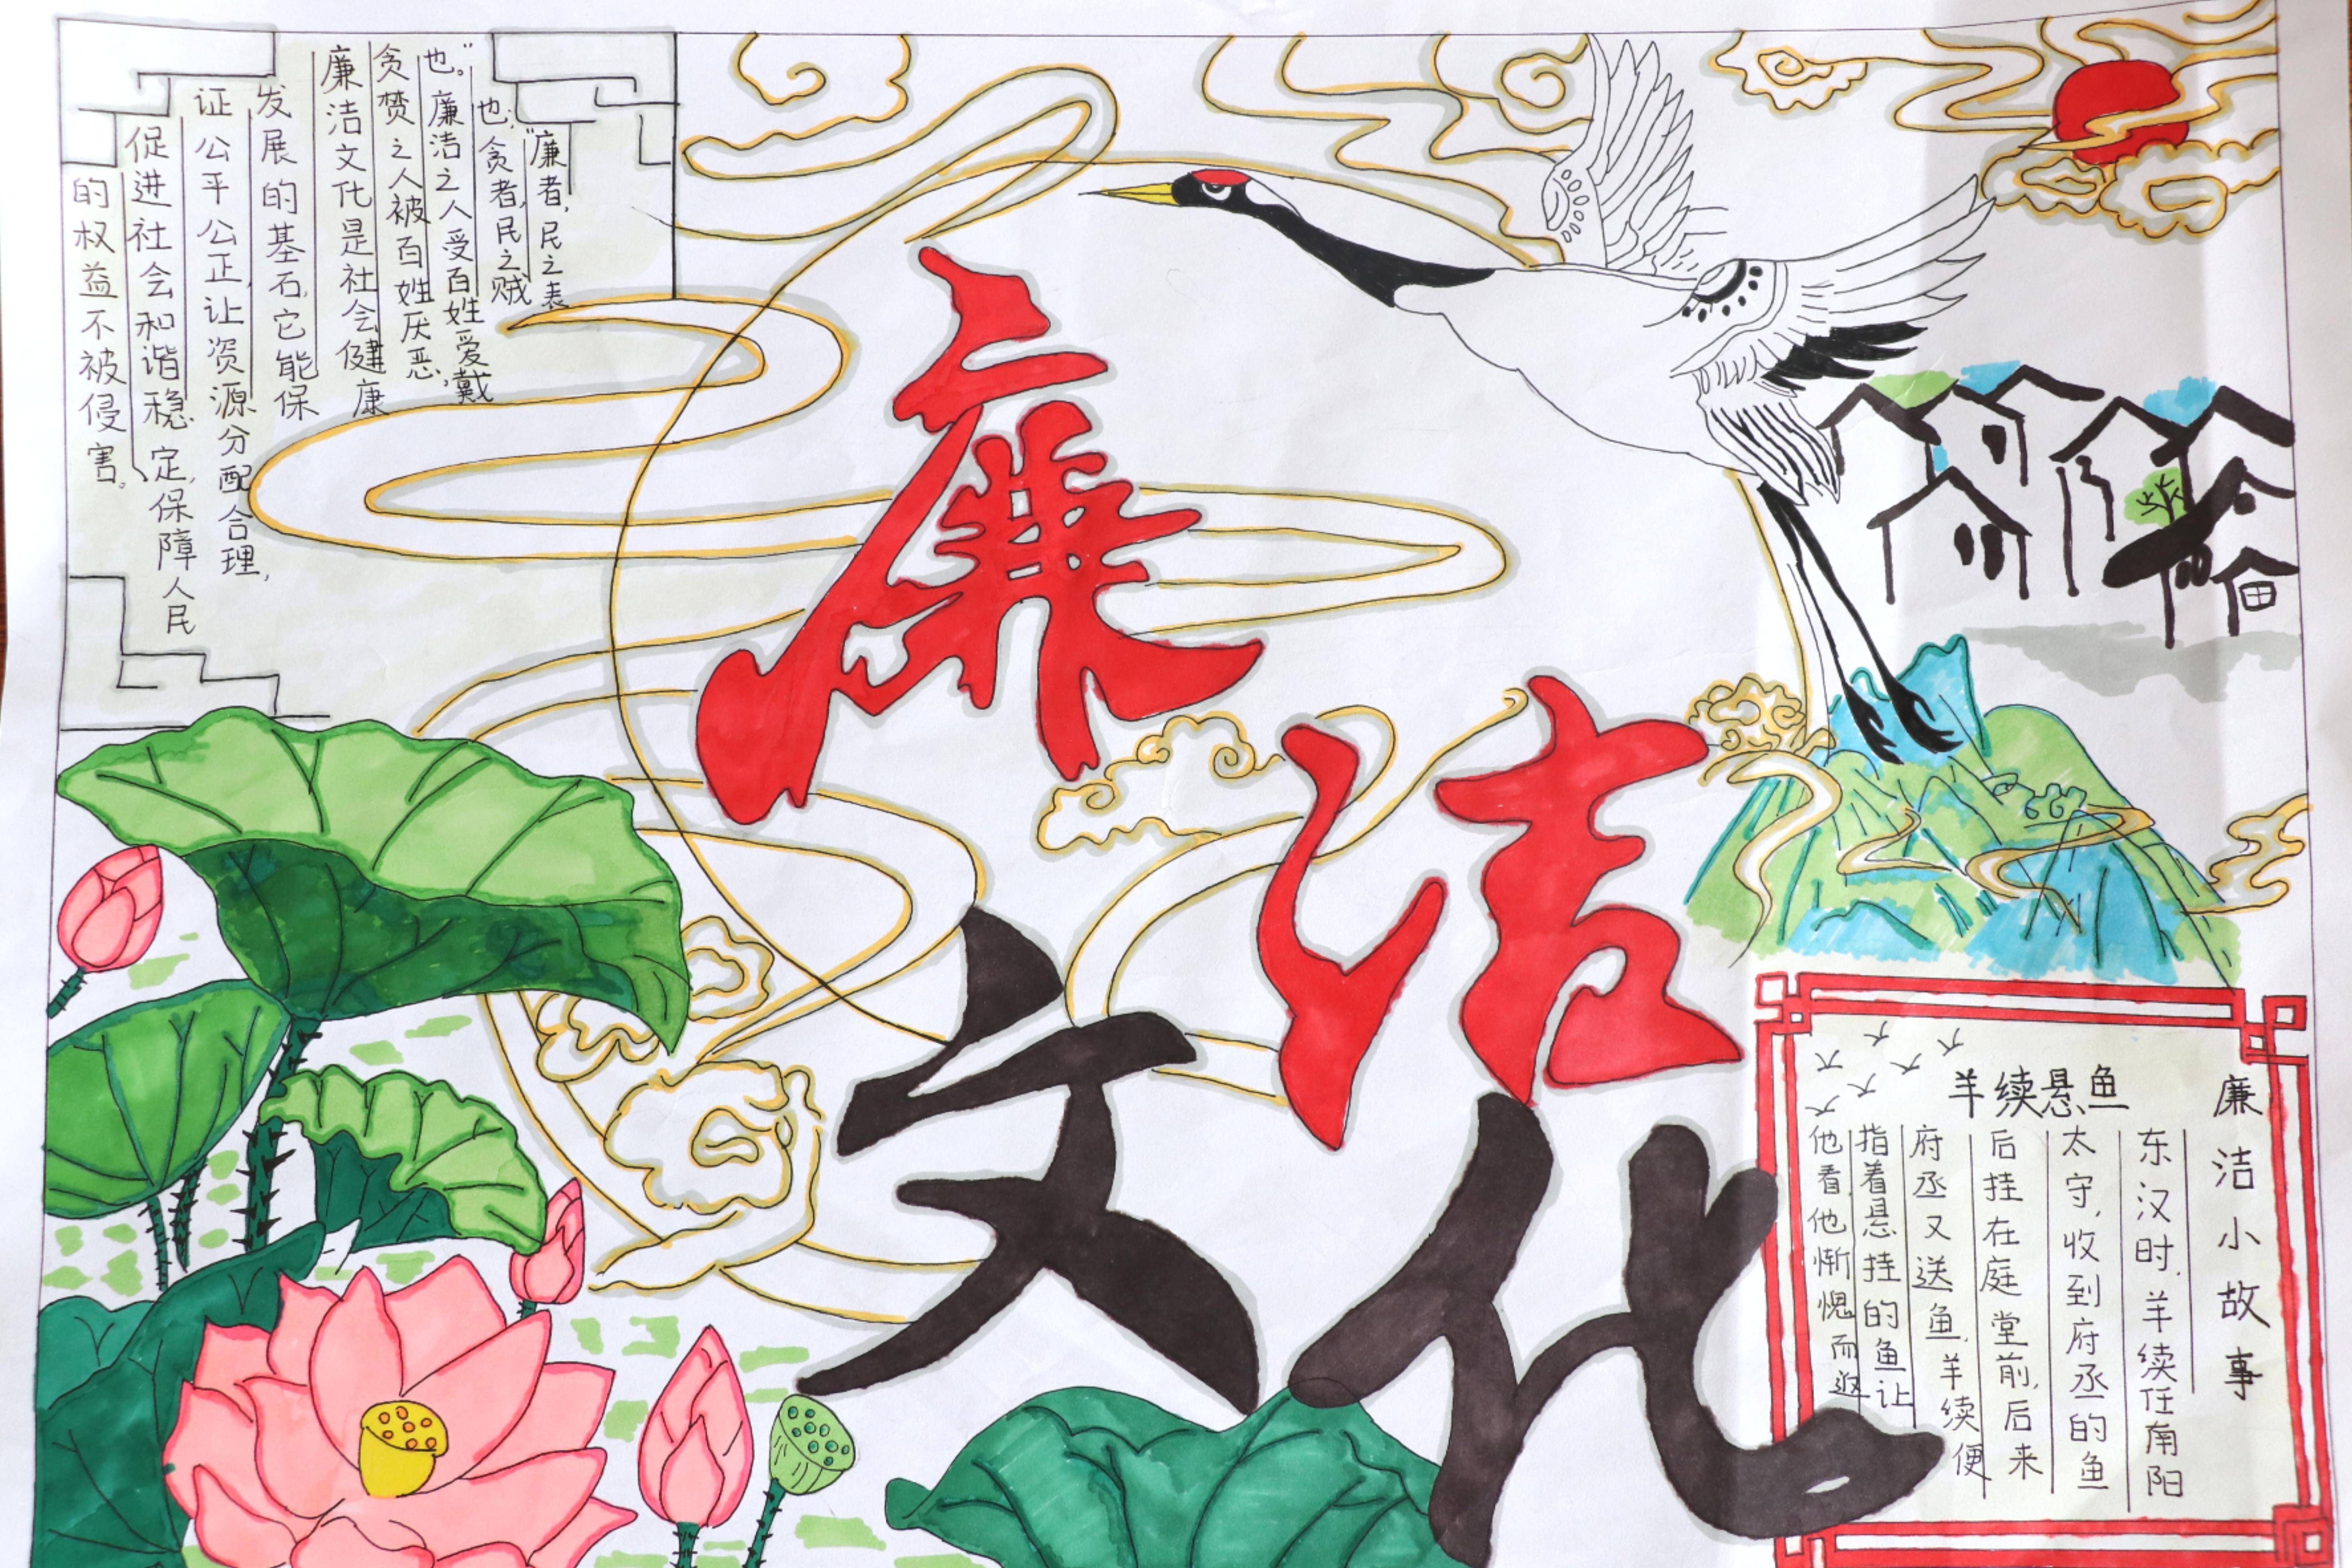 廉洁
文化
“廉者,民之表
也;贪者,民之贼
也。”廉洁之人受百姓爱戴,
贪婪之人被百姓厌恶,
廉洁文化是社会健康
发展的基石,它能保
证公平公正,让资源分配合理,
促进社会和谐稳定,保障人民
的权益不被侵害。
廉洁小故事
羊续悬鱼
东汉时,羊续任南阳
太守,收到府丞的鱼
后挂在庭堂前,后来
府丞又送鱼,羊续便
指着悬挂的鱼让
他看,他惭愧而返